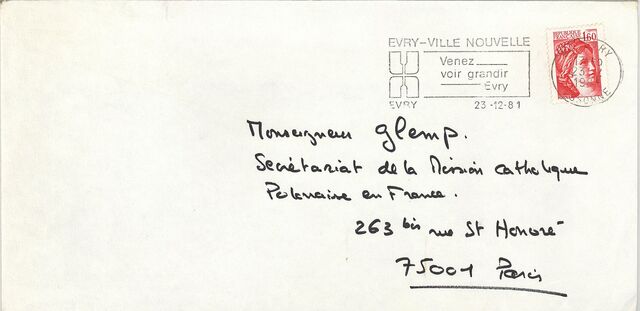 EVRY-VILLE NOUVELLE
Venez
voir grandir
Evry
EVRY 23-12-81
REPUBLIQUE FRANÇAISE 1,60
Monseigneur Glemp.
Secrétariat de la Mission catholique
Polonaise en France.
263 bis rue St Honoré
75001 Paris